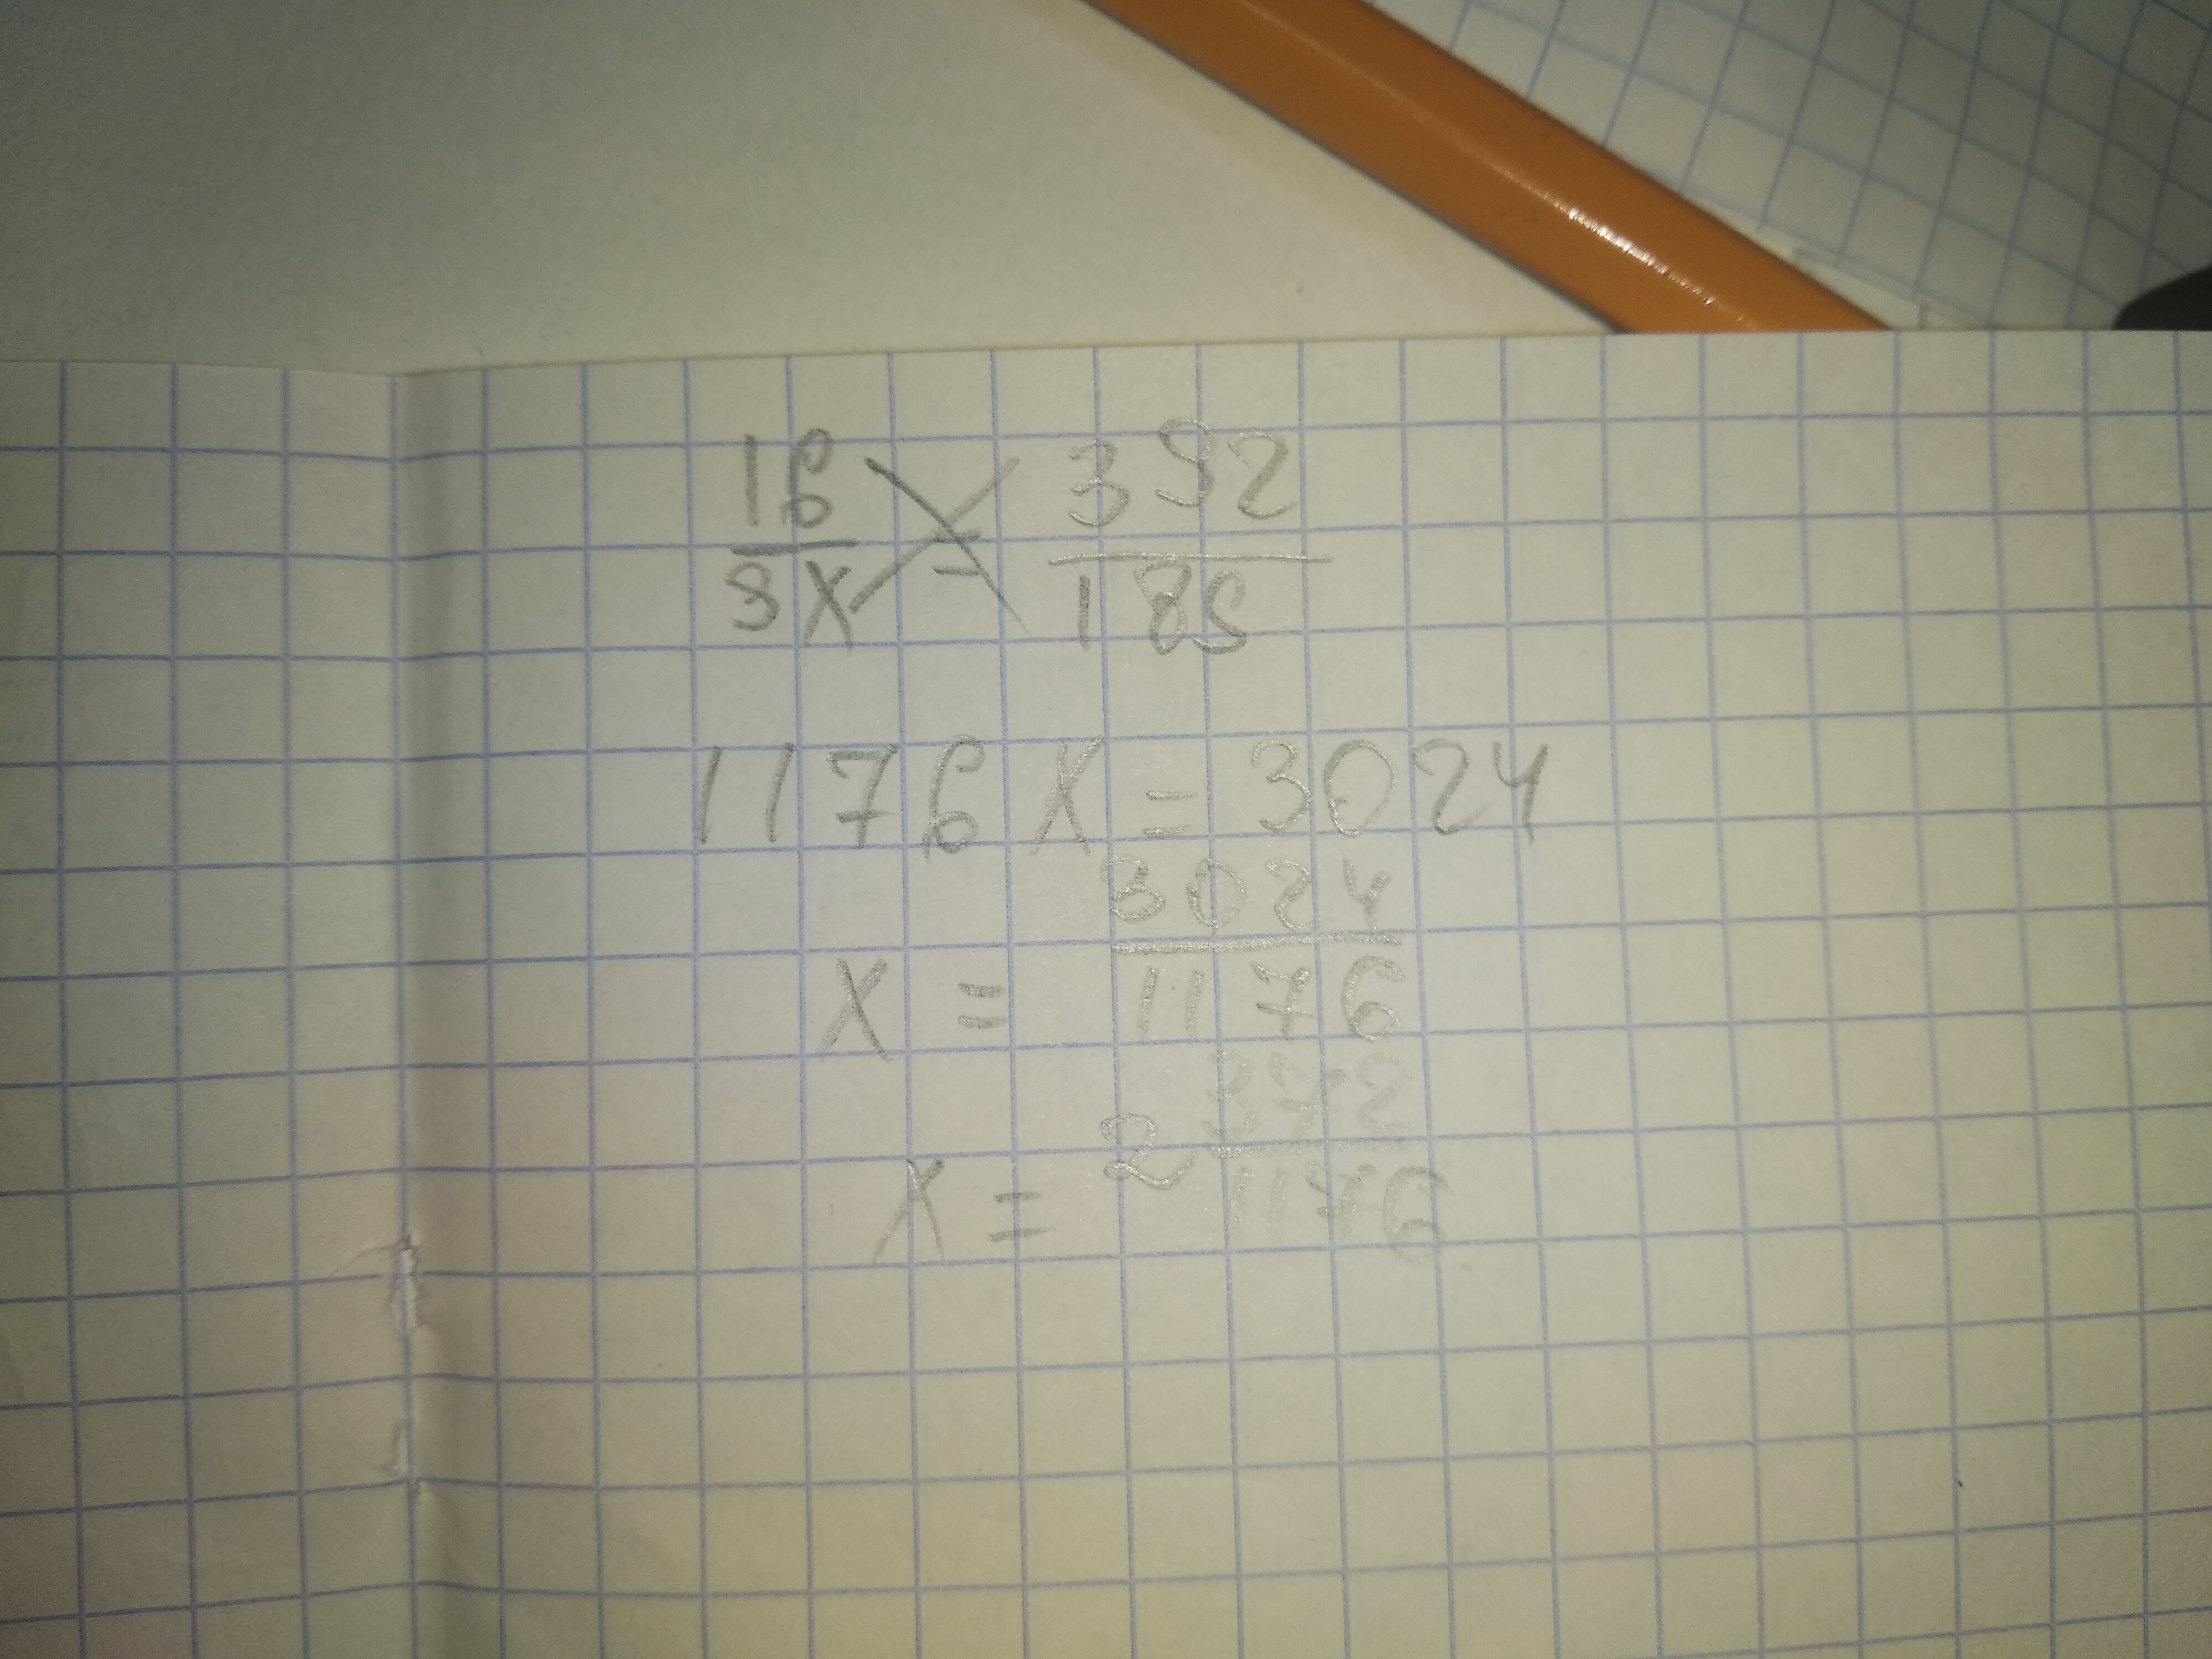 16/3x = 392/189
1176x = 3024
x = 3024/1176
x = 2 372/1176